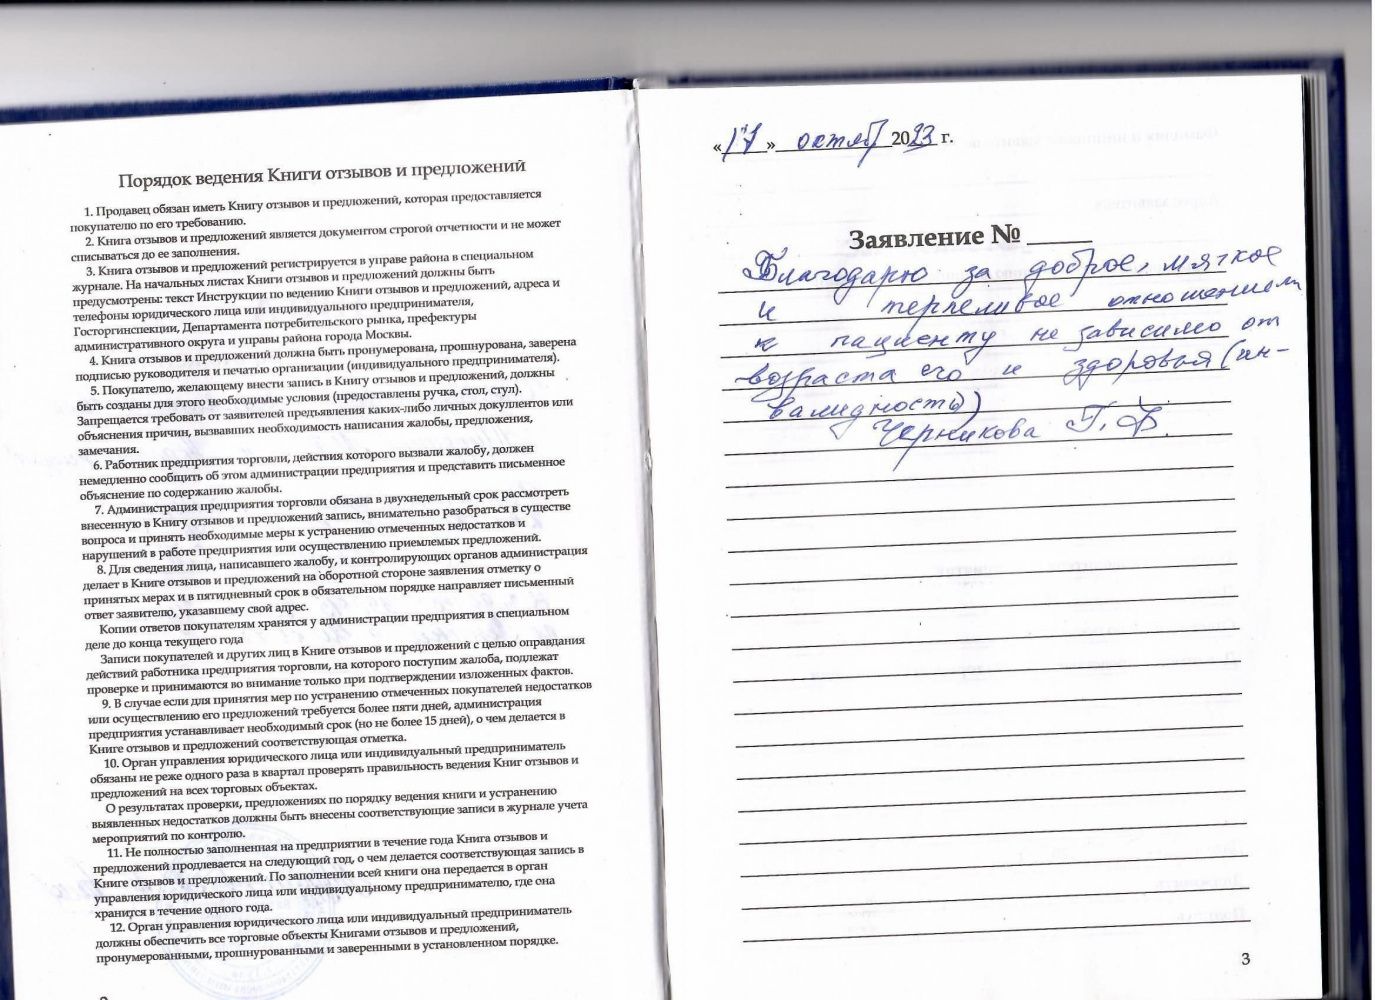 Порядок ведения Книги отзывов и предложений
1. Продавец обязан иметь Книгу отзывов и предложений, которая предоставляется
покупателю по его требованию.
2. Книга отзывов и предложений является документом строгой отчетности и не может
списываться до ее заполнения.
3. Книга отзывов и предложений регистрируется в управе района в специальном
журнале. На начальных листах Книги отзывов и предложений должны быть
предусмотрены: текст Инструкции по ведению Книги отзывов и предложений, адреса и
телефоны юридического лица или индивидуального предпринимателя,
Госторгинспекции, Департамента потребительского рынка, префектуры
административного округа и управы района города Москвы.
4. Книга отзывов и предложений должна быть пронумерована, прошнурована, заверена
подписью руководителя и печатью организации (индивидуального предпринимателя).
5. Покупателю, желающему внести запись в Книгу отзывов и предложений, должны
быть созданы для этого необходимые условия (предоставлены ручка, стол, стул).
Запрещается требовать от заявителей предъявления каких-либо личных докуллентов или
объяснения причин, вызвавших необходимость написания жалобы, предложения,
замечания.
6. Работник предприятия торговли, действия которого вызвали жалобу, должен
немедленно сообщить об этом администрации предприятия и представить письменное
объяснение по содержанию жалобы.
7. Администрация предприятия торговли обязана в двухнедельный срок рассмотреть
внесенную в Книгу отзывов и предложений запись, внимательно разобраться в существе
вопроса и принять необходимые меры к устранению отмеченных недостатков и
нарушений в работе предприятия или осуществлению приемлемых предложений.
8. Для сведения лица, написавшего жалобу, и контролирующих органов администрация
делает в Книге отзывов и предложений на оборотной стороне заявления отметку о
принятых мерах и в пятидневный срок в обязательном порядке направляет письменный
ответ заявителю, указавшему свой адрес.
Копии ответов покупателям хранятся у администрации предприятия в специальном
деле до конца текущего года
Записи покупателей и других лиц в Книге отзывов и предложений с целью оправдания
действий работника предприятия торговли, на которого поступим жалоба, подлежат
проверке и принимаются во внимание только при подтверждении изложенных фактов.
9. В случае если для принятия мер по устранению отмеченных покупателей недостатков
или осуществлению его предложений требуется более пяти дней, администрация
предприятия устанавливает необходимый срок (но не более 15 дней), о чем делается в
Книге отзывов и предложений соответствующая отметка.
10. Орган управления юридического лица или индивидуальный предприниматель
обязаны не реже одного раза в квартал проверять правильность ведения Книг отзывов и
предложений на всех торговых объектах.
О результатах проверки, предложениях по порядку ведения книги и устранению
выявленных недостатков должны быть внесены соответствующие записи в журнале учета
мероприятий по контролю.
11. Не полностью заполненная на предприятии в течение года Книга отзывов и
предложений продлевается на следующий год, о чем делается соответствующая запись в
Книге отзывов и предложений. По заполнении всей книги она передается в орган
управления юридического лица или индивидуальному предпринимателю, где она
хранится в течение одного года.
12. Орган управления юридического лица или индивидуальный предприниматель
должны обеспечить все торговые объекты Книгами отзывов и предложений,
пронумерованными, прошнурованными и заверенными в установленном порядке.
«17» октяб 2023 г.
Заявление № ____
Благодарю за доброе, мягкое
и терпеливое отношением
к пациенту не зависимо от
возраста его и здоровья (ин-
валидность)
Черникова Г. Ф.
3